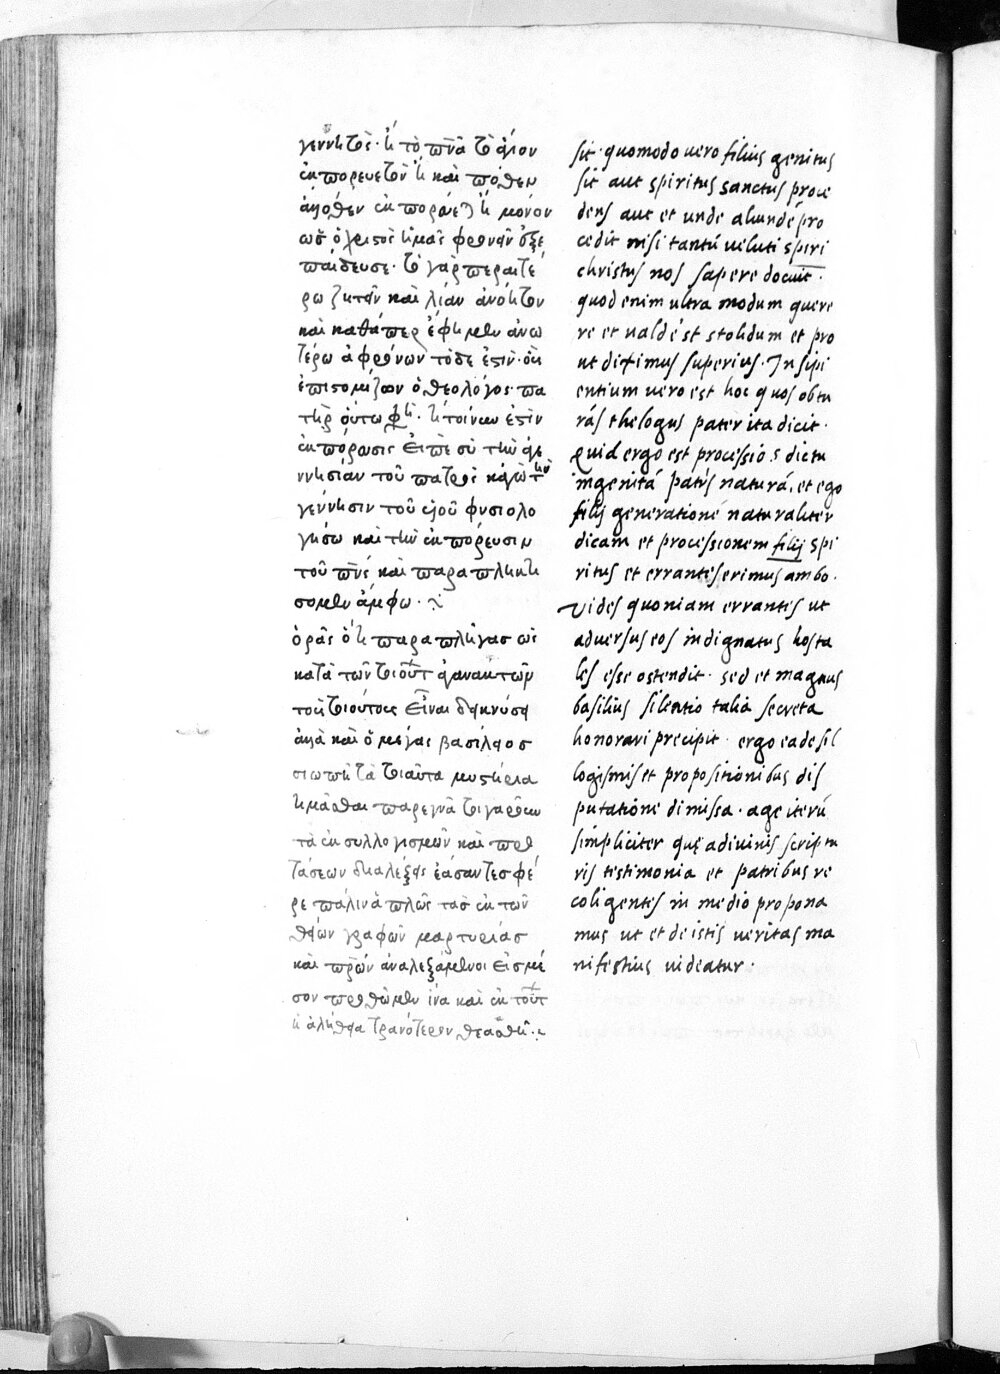 γεννητὸς· ἢ τὸ πνᾶ τὸ ἅγιον
ἐκπορευετὸν ἢ καὶ πόθεν
ἄλλοθεν ἐκπορεύε ἢ μόνον
ὡς ὁ χριστὸς ἡμᾶς φρονεῖν ἐξε
παίδευσε· τὸ γὰρ περαιτέ
ρω ζητεῖν καὶ λίαν ἀνόητον
καὶ καθάπερ ἔφημεν ἀνω
τέρω ἀφρόνων τόδε ἐστὶν· οὓς
ἐπιστομίζων ὁ θεολόγος πα
τὴρ οὕτω φη· τί τοίνυν ἐστὶν
ἐκπόρευσις εἰπὲ σὺ τὴν ἀγε
ννησίαν τοῦ πατρὸς κἀγὼ τὴν
γέννησιν τοῦ υἱοῦ φυσιολο
γήσω καὶ τὴν ἐκπόρευσιν
τοῦ πνς καὶ παραπληκτι
σομεν ἄμφω·
ὁρᾶς ὅτι παραπλῆγας ὡς
κατὰ τῶν τοιούτ ἀγανακτῶν
τοὺς τοιούτους εἶναι δεικνύει
ἀλλὰ καὶ ὁ μέγας βασίλειος
σιωπῆ τὰ τοιαῦτα μυστήρια
τιμᾶσθαι παρεγγυᾶ τοιγαροῦν
τὰ ἐκ συλλογισμῶν καὶ προ
τάσεων διαλέξεις ἐάσαντες φέ
ρε πάλιν ἁπλῶς τὰς ἐκ τῶν
θείων γραφῶν μαρτυρίας
καὶ πρων ἀναλεξάμενοι εἰς μέ
σον προθῶμεν ἵνα καὶ ἐκ τούτ
ἡ ἀλήθεια τρανότερον θεαθῆ·
sit· quomodo uero filius genitus
sit aut spiritus sanctus proce
dens aut et unde aliunde pro
cedit nisi tantū ueluti spiri
christus nos sapere docuit·
quod enim ultra modum quere
re et ualde st stolidum et pro
ut diximus superius· Insipi
entium uero est hoc quos obtu
rás thelogus pater ita dicit·
Quid ergo est processio s dictu
ingenitá patris naturá, et ego
filij generationé naturaliter
dicam et processionem filij spi
ritus et errantes erimus ambo·
Vides quoniam errantes ut
aduersus eos indignatus hosta
les esse ostendit· sed et magnus
basilius silentio talia secreta
honorari precipit· ergo eadesil
logismis et propositionibus dis
putatione dimissa· age iterū
simpliciter quę adiuinis scriptu
ris testimonia et patribus re
coligentes in medio propona
mus ut et de istis ueritas ma
nifestius uideatur·